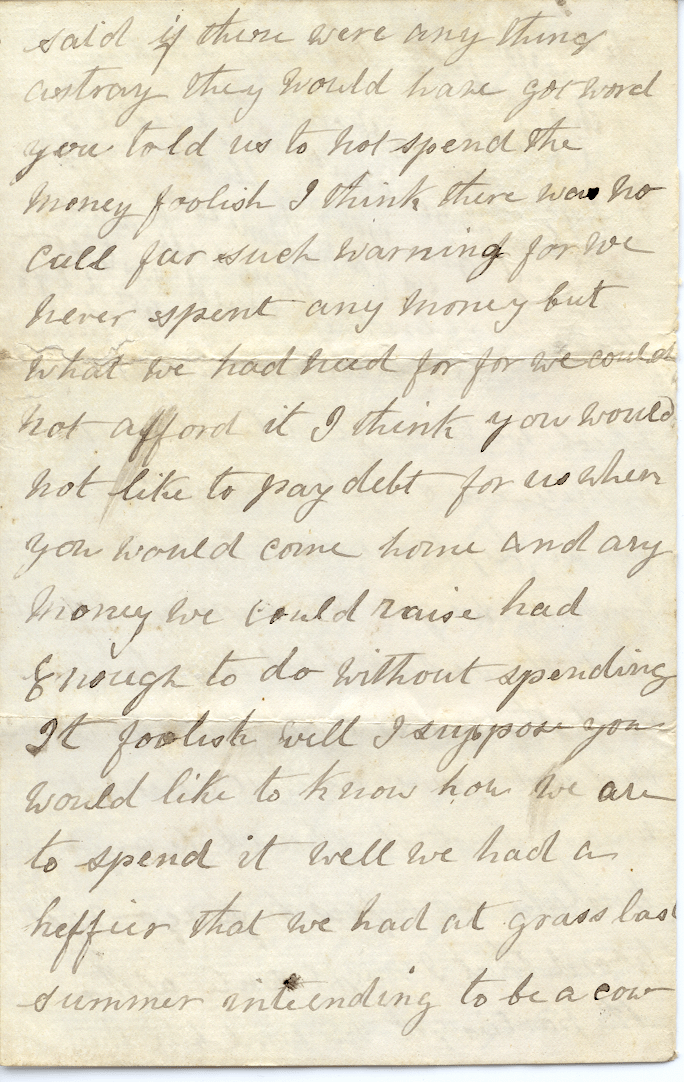 said if there were any thing
astray they would have got word
you told us to not spend the
money foolish I think there was no
call for such warning for we
never spent any money but
what we had need for for we could
not afford it I think you would
not like to pay debt for us when
you would come home and any
money we could raise had
Enough to do without spending
It foolish will I suppose you
would like to know how we are
to spend it well we had a
heffier that we had at grass last
summer inteending to be a cow